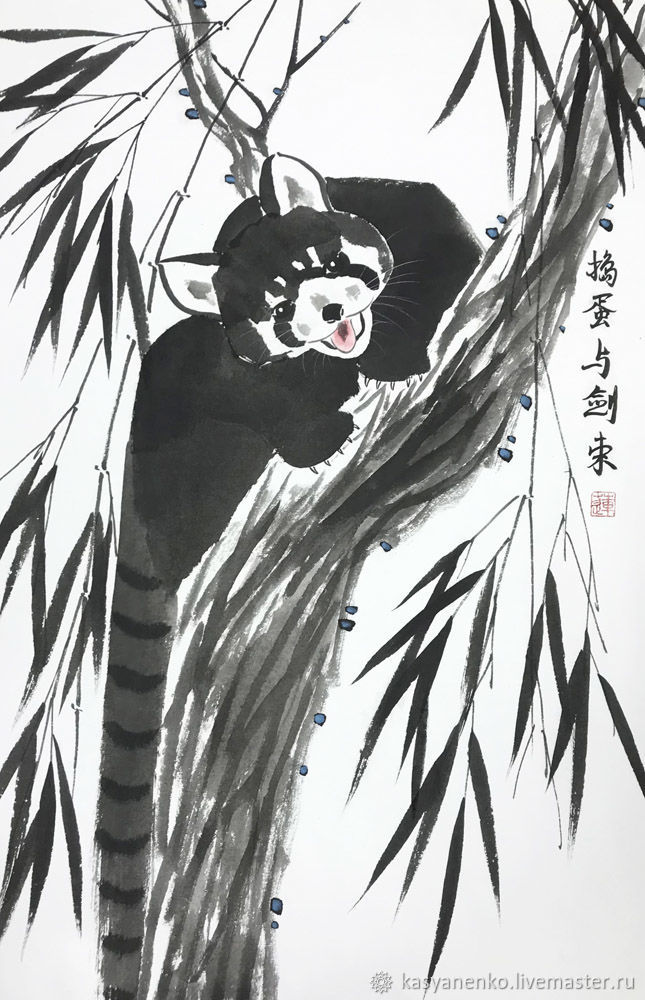 搗蛋与劍束
kasyanenko.livemaster.ru